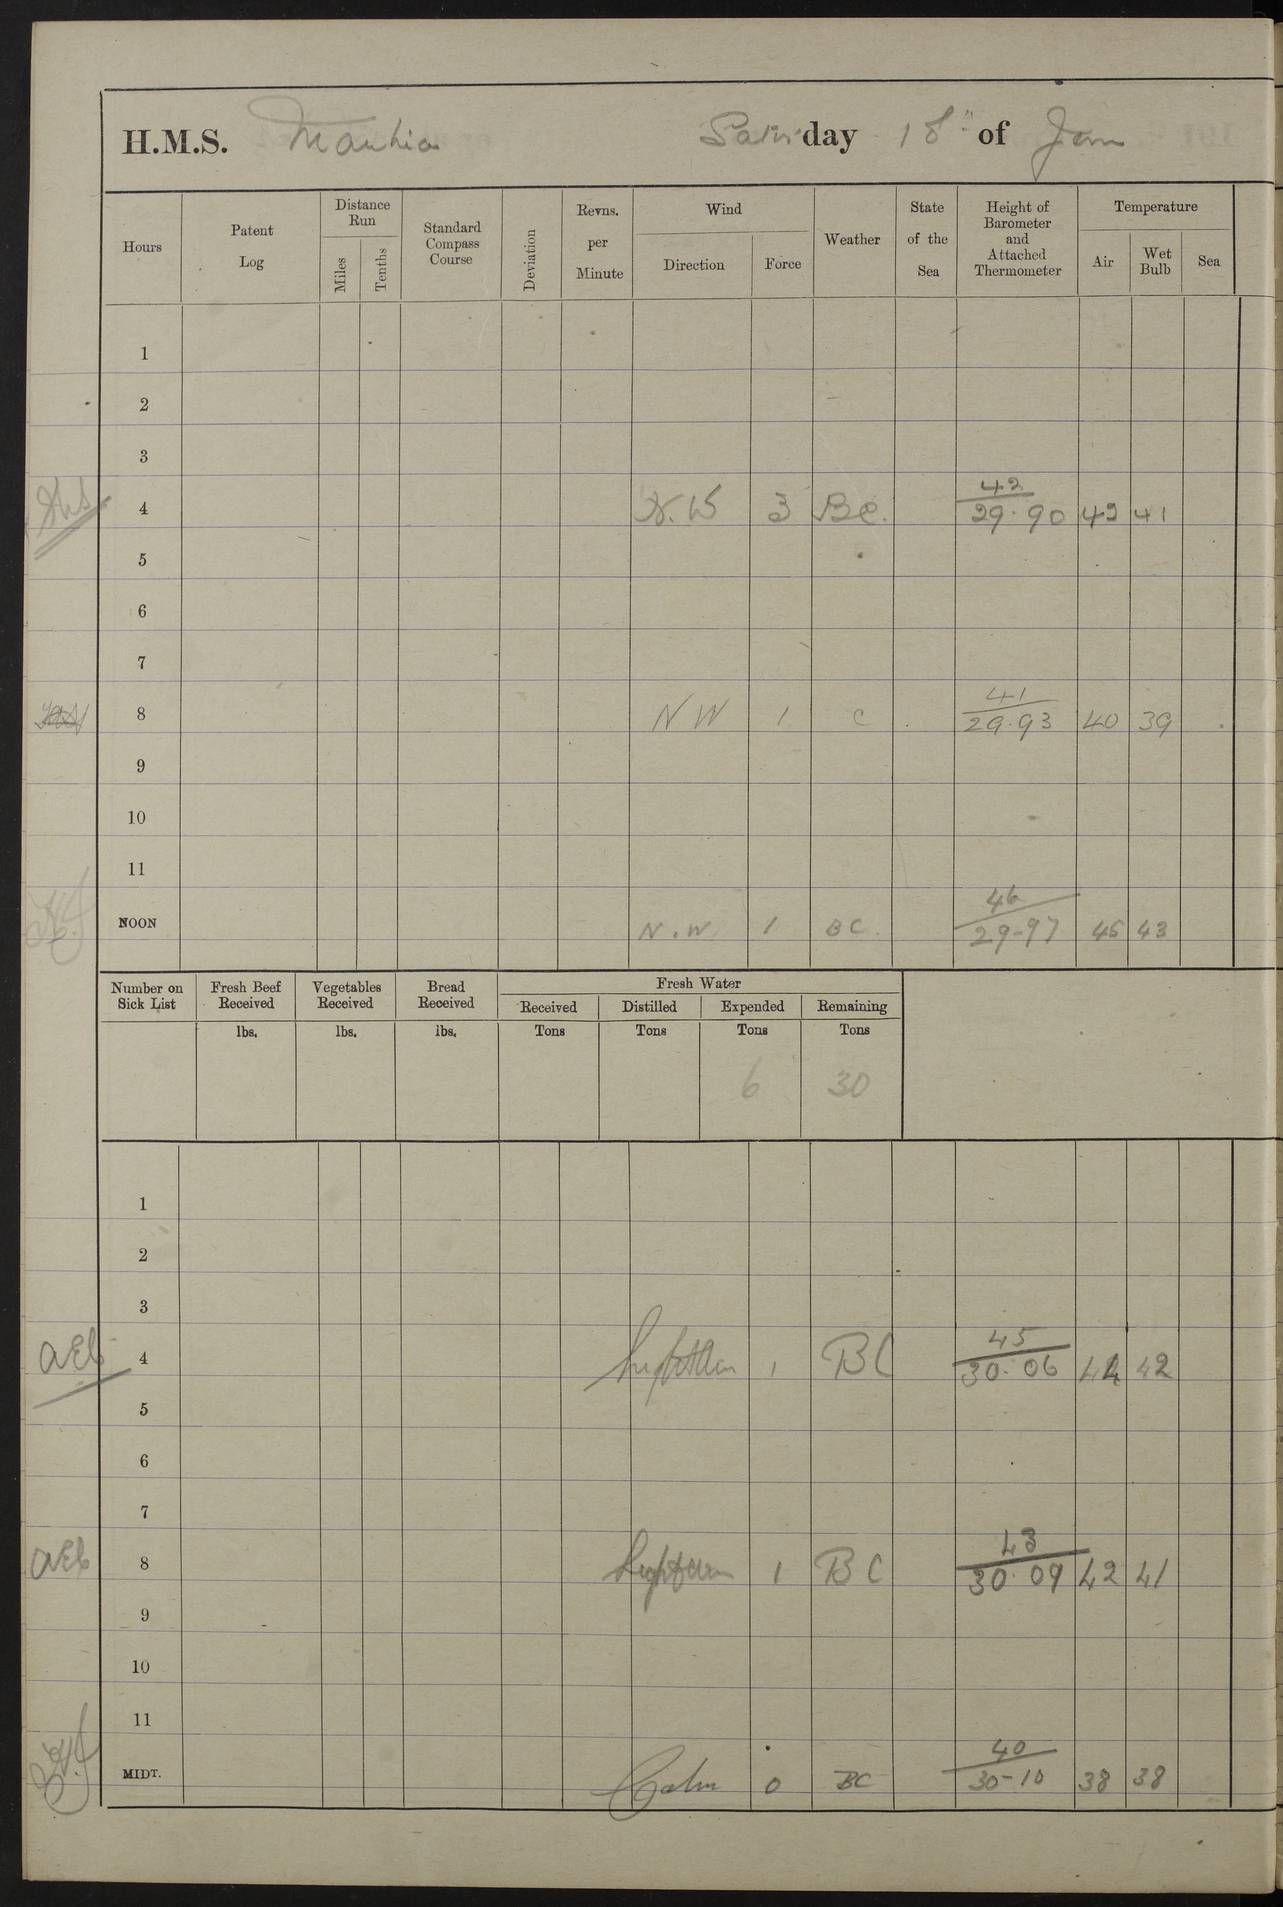 H.M.S. Mantua Saturday 18th of Jan
Hours Patent Log Distance Run Miles Tenths Standard Compass Course Deviation Revns. per Minute Wind Direction Force Weather State of the Sea Height of Barometer and Attached Thermometer Temperature Air Wet Bulb Sea
1
2
3
42
4 N.W 3 BC. 29.90 42 41
5
6
7
41
8 NW 1 C 29.93 40 39
9
10
11
46
NOON N.W. 1 BC. 29-97 45 43
Number on Sick List Fresh Beef Received Vegetables Received Bread Received Fresh Water
Received Distilled Expended Remaining
lbs. lbs. lbs. Tons Tons Tons Tons
6 30
1
2
3
45
AEb 4 1 BC 30.06 44 42
5
6
7
43
AEb 8 1 BC 30.09 42 41
9
10
11
40
MIDT. Calm 0 BC 30-10 38 38